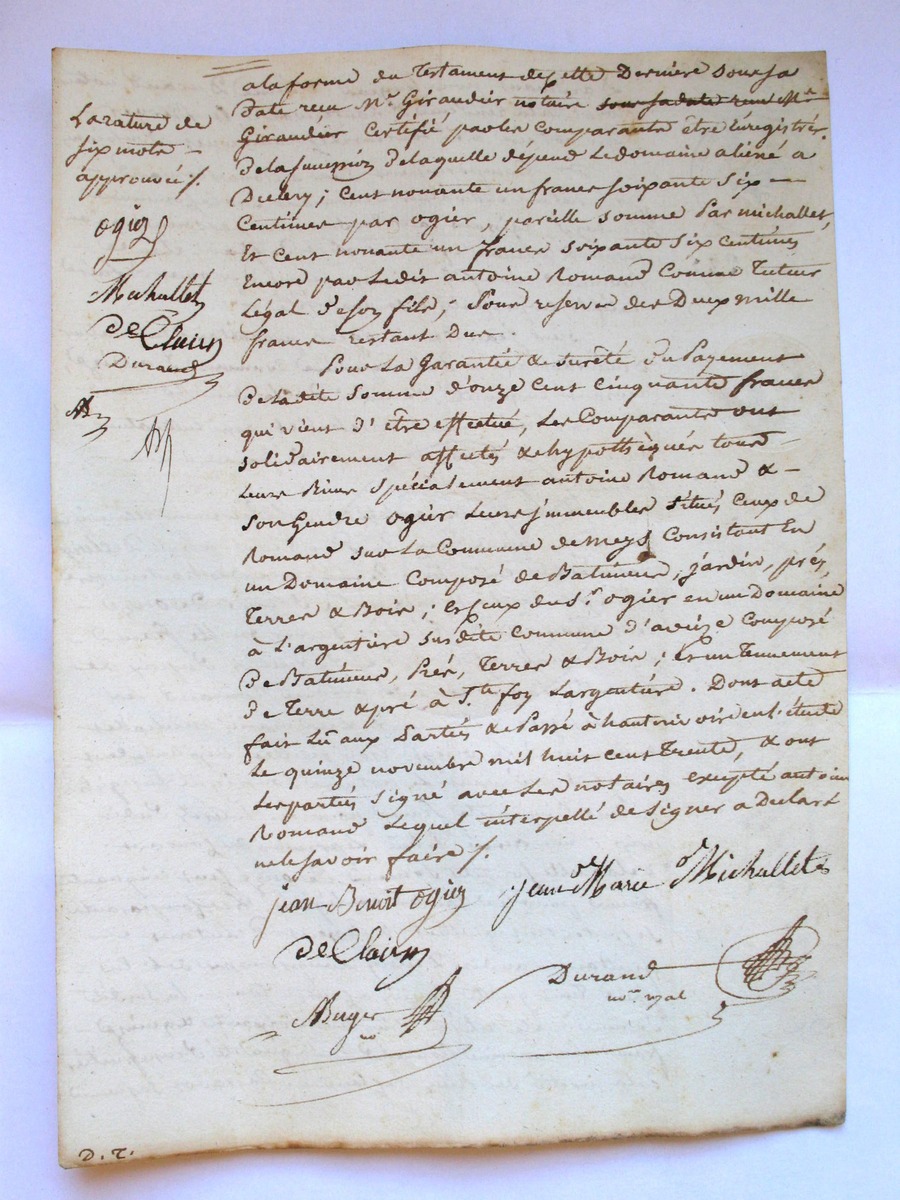 La rature de
six mots
approuvée /.
ogier
Michallet
de Clairin
Durand
a la forme du Testament de cette Derniere sous sa
Date recu Mr. Giraudier notaire sous sa date recu Mr
Giraudier Certifié par les Comparants être Enregistrés.
De la succession De laquelle dépend Le domaine aliené a
; Cent nonante un francs soixante Six
Centimes par ogier, pareille somme Par michallet,
Et Cent nonante un francs soixante Six Centimes
Encore par Ledit antoine Romand Comme Tuteur
Légal De son fils; Pour reserve des Deux mille
francs restant Dus.
Pour La Garantie & sureté du Payement
De la dite Somme d'onze Cent Cinquante francs
qui vient d'être effectué, Les Comparants ont
solidairement affectés & hypothèqués tous
Leurs Biens Spécialement antoine Romand &
Son Gendre ogier Leurs immeubles situés Ceux de
Romand sur La Commune de meys Consistant En
un Domaine Composé de Batiments, jardin, prés,
Terres & Bois; et Ceux du Sr. ogier en un Domaine
à L'argentière susdite Commune d'aveize Composé
De Batiments, Prés, Terres & Bois; Et un Tennement
de Terre & pré à Ste foy Largentière. Dont acte
fait Lu aux Parties & Passé à hauterivoire en l'étude
Le quinze novembre mil huit cent Trente, & ont
Les parties signé avec Les notaires excepté antoine
Romand Lequel interpellé de signer a Declaré
ne le savoir faire /.
jean Benoit ogier
jean Marie Michallet
de Clairin
Durand
nore. royal
D. T.